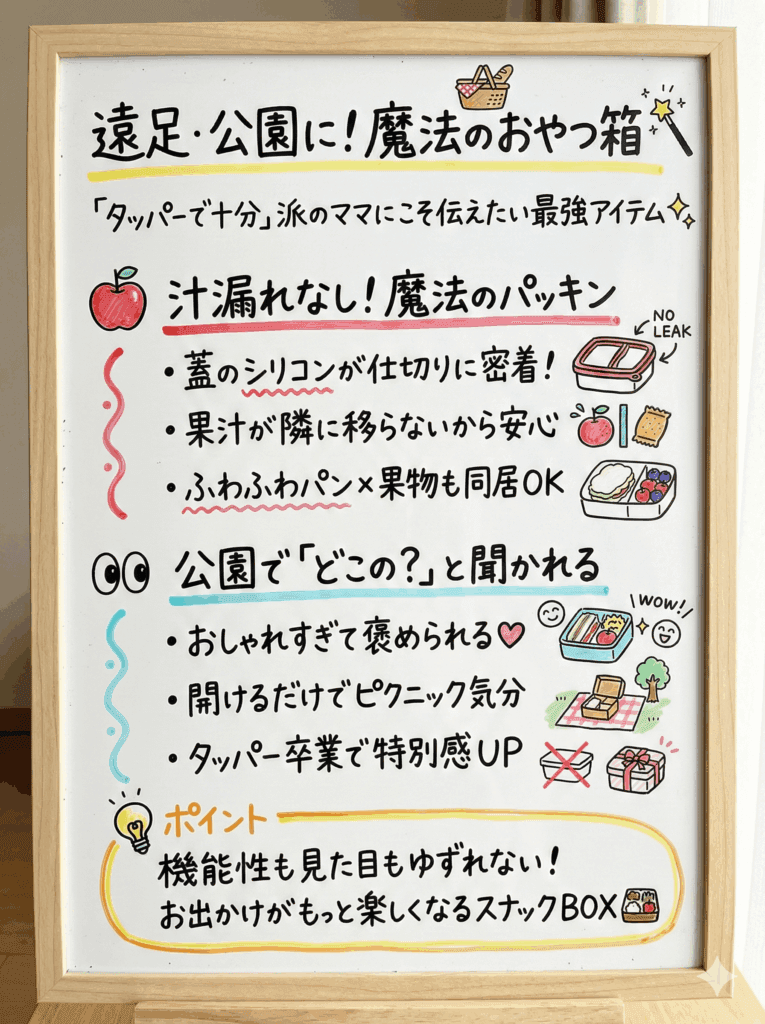 遠足・公園に！魔法のおやつ箱
「タッパーで十分」派のママにこそ伝えたい最強アイテム
汁漏れなし！魔法のパッキン
NO LEAK
・蓋のシリコンが仕切りに密着！
・果汁が隣に移らないから安心
・ふわふわパン×果物も同居OK
公園で「どこの？」と聞かれる
WOW!
・おしゃれすぎて褒められる
・開けるだけでピクニック気分
・タッパー卒業で特別感UP
ポイント
機能性も見た目もゆずれない！
お出かけがもっと楽しくなるスナックBOX